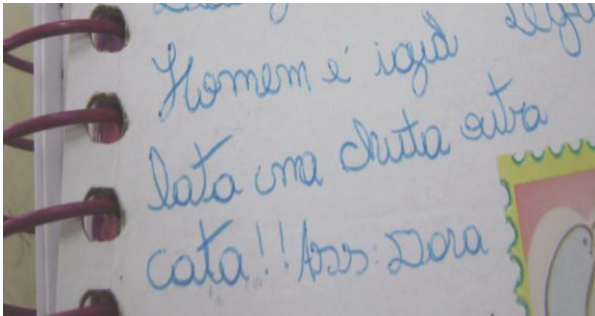 Homem é igual
lata uma chuta outra
cata!! Ass: Dora